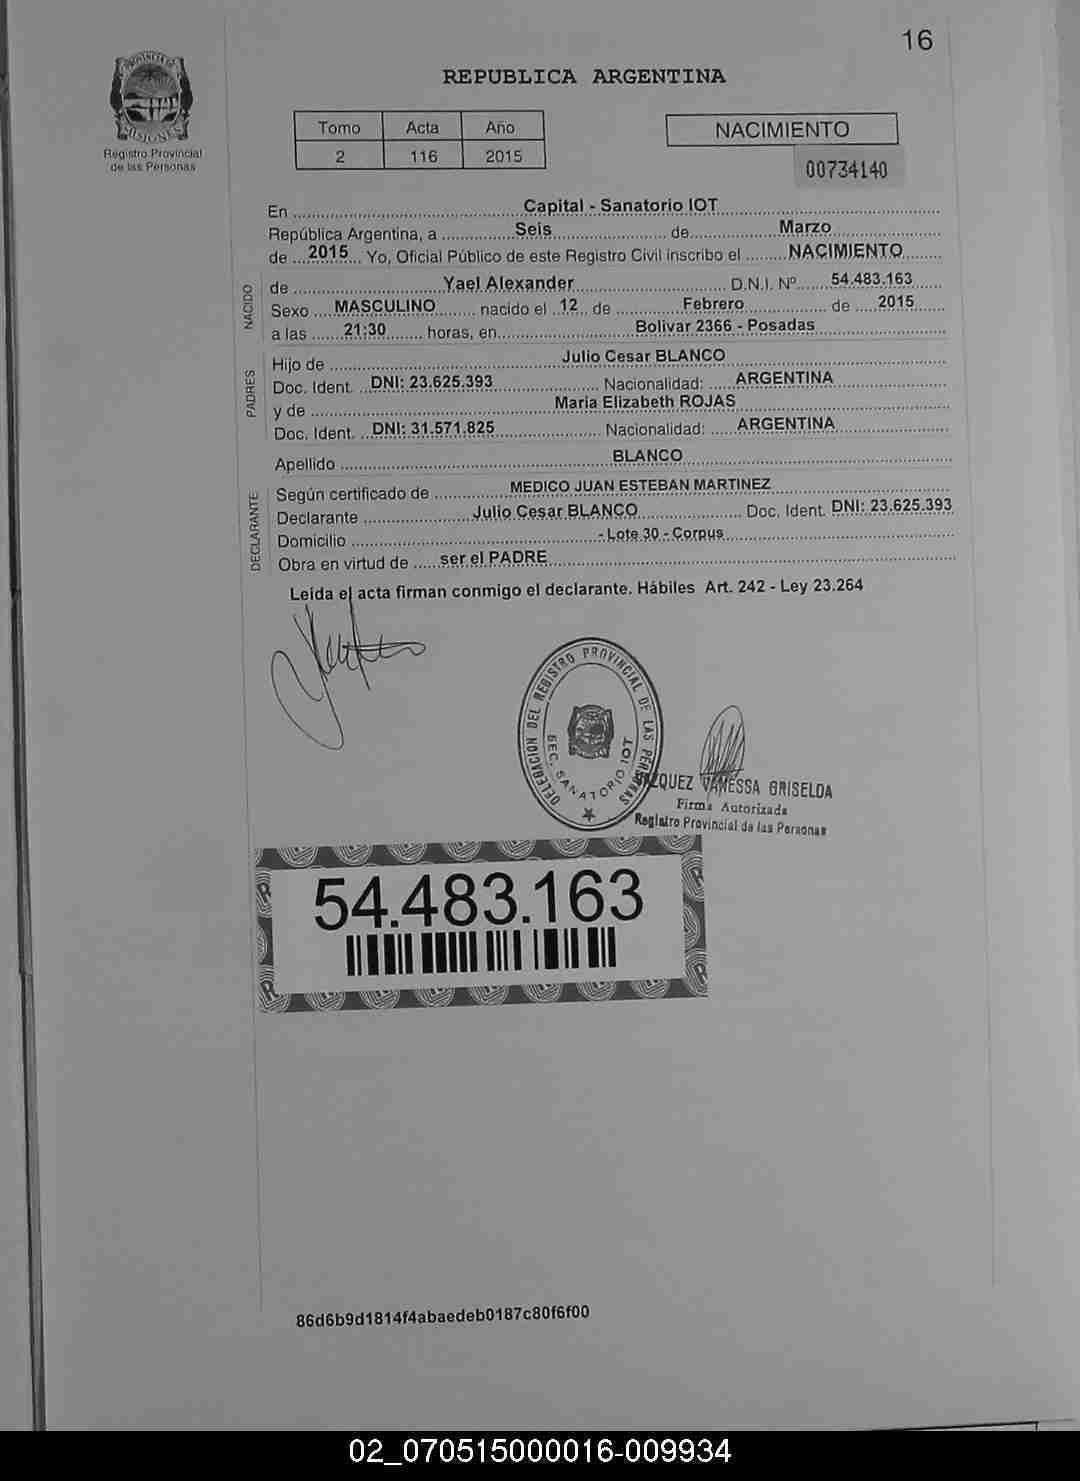 16
PROVINCIA DE
MISIONES
Registro Provincial
de las Personas
REPUBLICA ARGENTINA
Tomo Acta Año
2 116 2015
NACIMIENTO
00734140
En Capital - Sanatorio IOT
República Argentina, a Seis de Marzo
de 2015 Yo, Oficial Público de este Registro Civil inscribo el NACIMIENTO
NACIDO
de Yael Alexander D.N.I. Nº 54.483.163
Sexo MASCULINO nacido el 12 de Febrero de 2015
a las 21:30 horas, en Bolivar 2366 - Posadas
PADRES
Hijo de Julio Cesar BLANCO
Doc. Ident. DNI: 23.625.393 Nacionalidad: ARGENTINA
y de Maria Elizabeth ROJAS
Doc. Ident. DNI: 31.571.825 Nacionalidad: ARGENTINA
Apellido BLANCO
DECLARANTE
Según certificado de MEDICO JUAN ESTEBAN MARTINEZ
Declarante Julio Cesar BLANCO Doc. Ident. DNI: 23.625.393
Domicilio - Lote 30 - Corpus
Obra en virtud de ser el PADRE
Leída el acta firman conmigo el declarante. Hábiles Art. 242 - Ley 23.264
DELEGACION DEL REGISTRO PROVINCIAL DE LAS PERSONAS
SEC. SANATORIO IOT
VANESSA GRISELDA
Firma Autorizada
Registro Provincial de las Personas
54.483.163
86d6b9d1814f4abaedeb0187c80f6f00
02_070515000016-009934